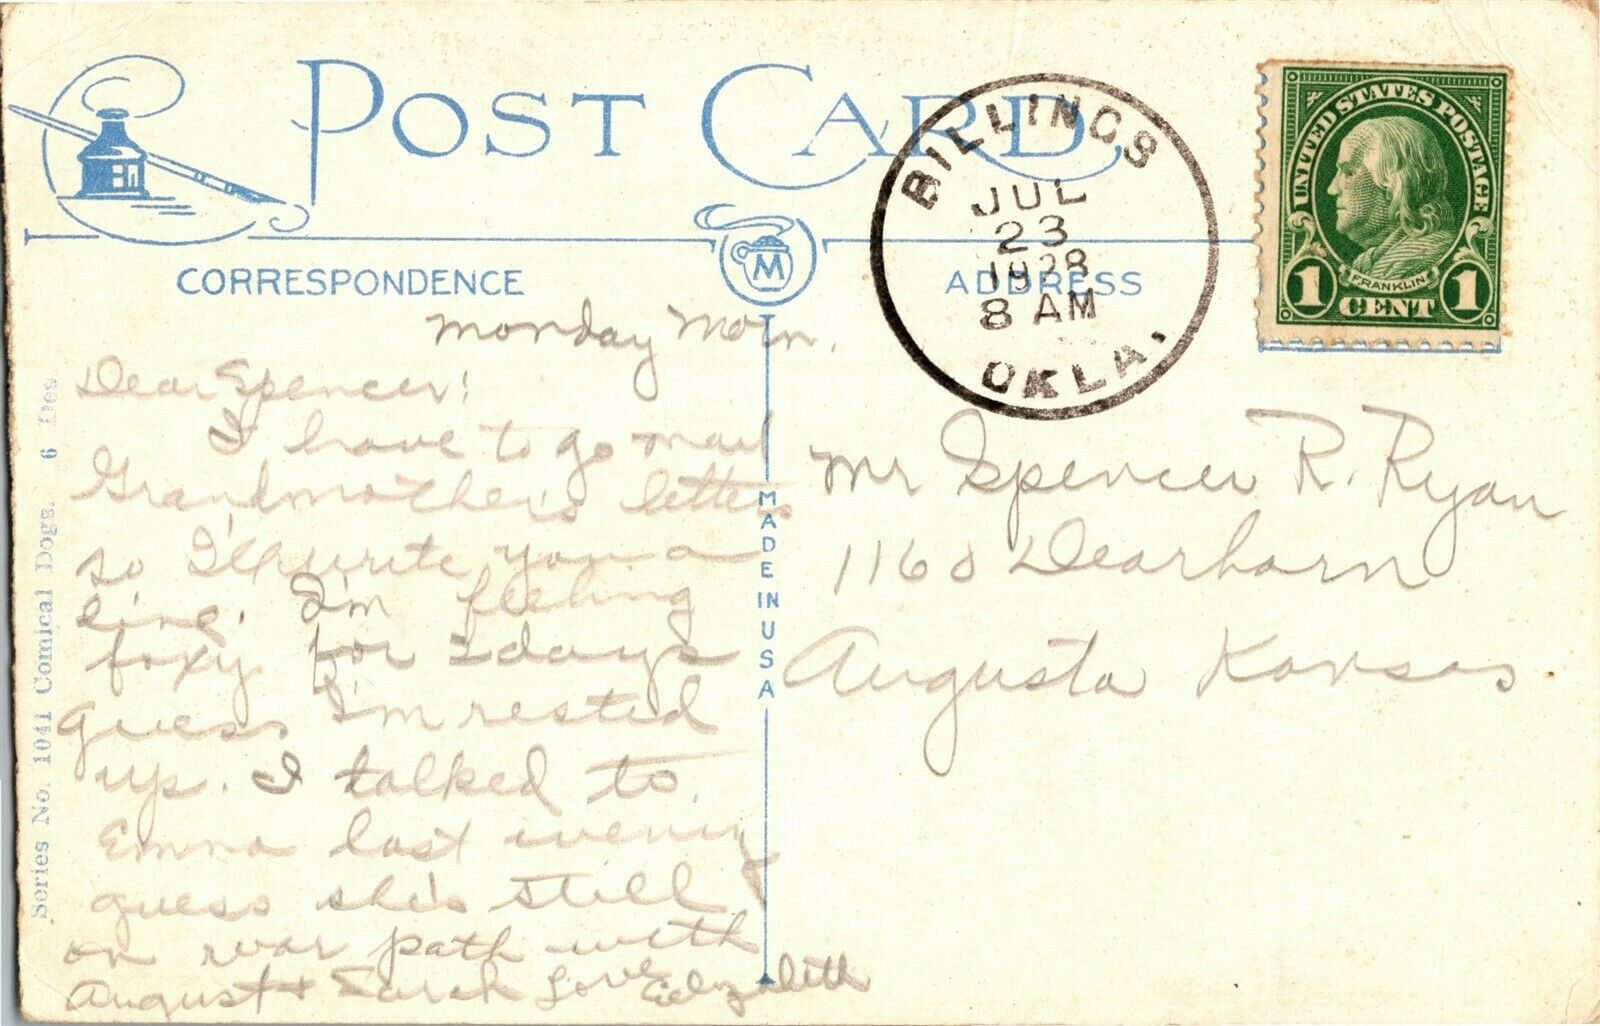 POST CARD
CORRESPONDENCE
M
ADDRESS
BILLINGS
JUL
23
1928
8 AM
OKLA.
UNITED STATES POSTAGE
FRANKLIN
1 CENT 1
Monday Morn.
Dear Spencer!
I have to go mail
Grandmother's letters
so I'll write you a
line. I'm feeling
foxy for 2 days
guess I'm rested
up. I talked to
Emma last evening
guess she's still
on war path with
August & Sarah Love Elizabeth
Mr Spencer R. Ryan
1160 Dearborn
Augusta Kansas.
MADE IN USA
Series No. 1041 Comical Dogs. 6 Des